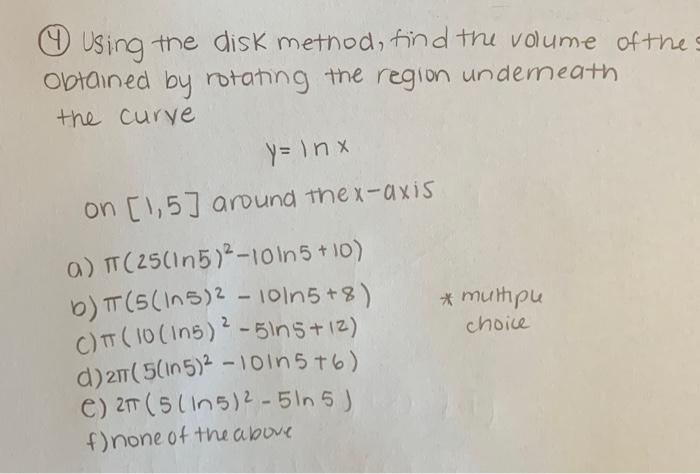 ④ Using the disk method, find the volume of the s
obtained by rotating the region underneath
the curve
y = ln x
on [1,5] around the x-axis
a) π(25(ln5)² - 10ln5 + 10)
b) π(5(ln5)² - 10ln5 + 8)
* multiple
c) π(10(ln5)² - 5ln5 + 12)
choice
d) 2π(5(ln5)² - 10ln5 + 6)
e) 2π(5(ln5)² - 5ln5)
f) none of the above